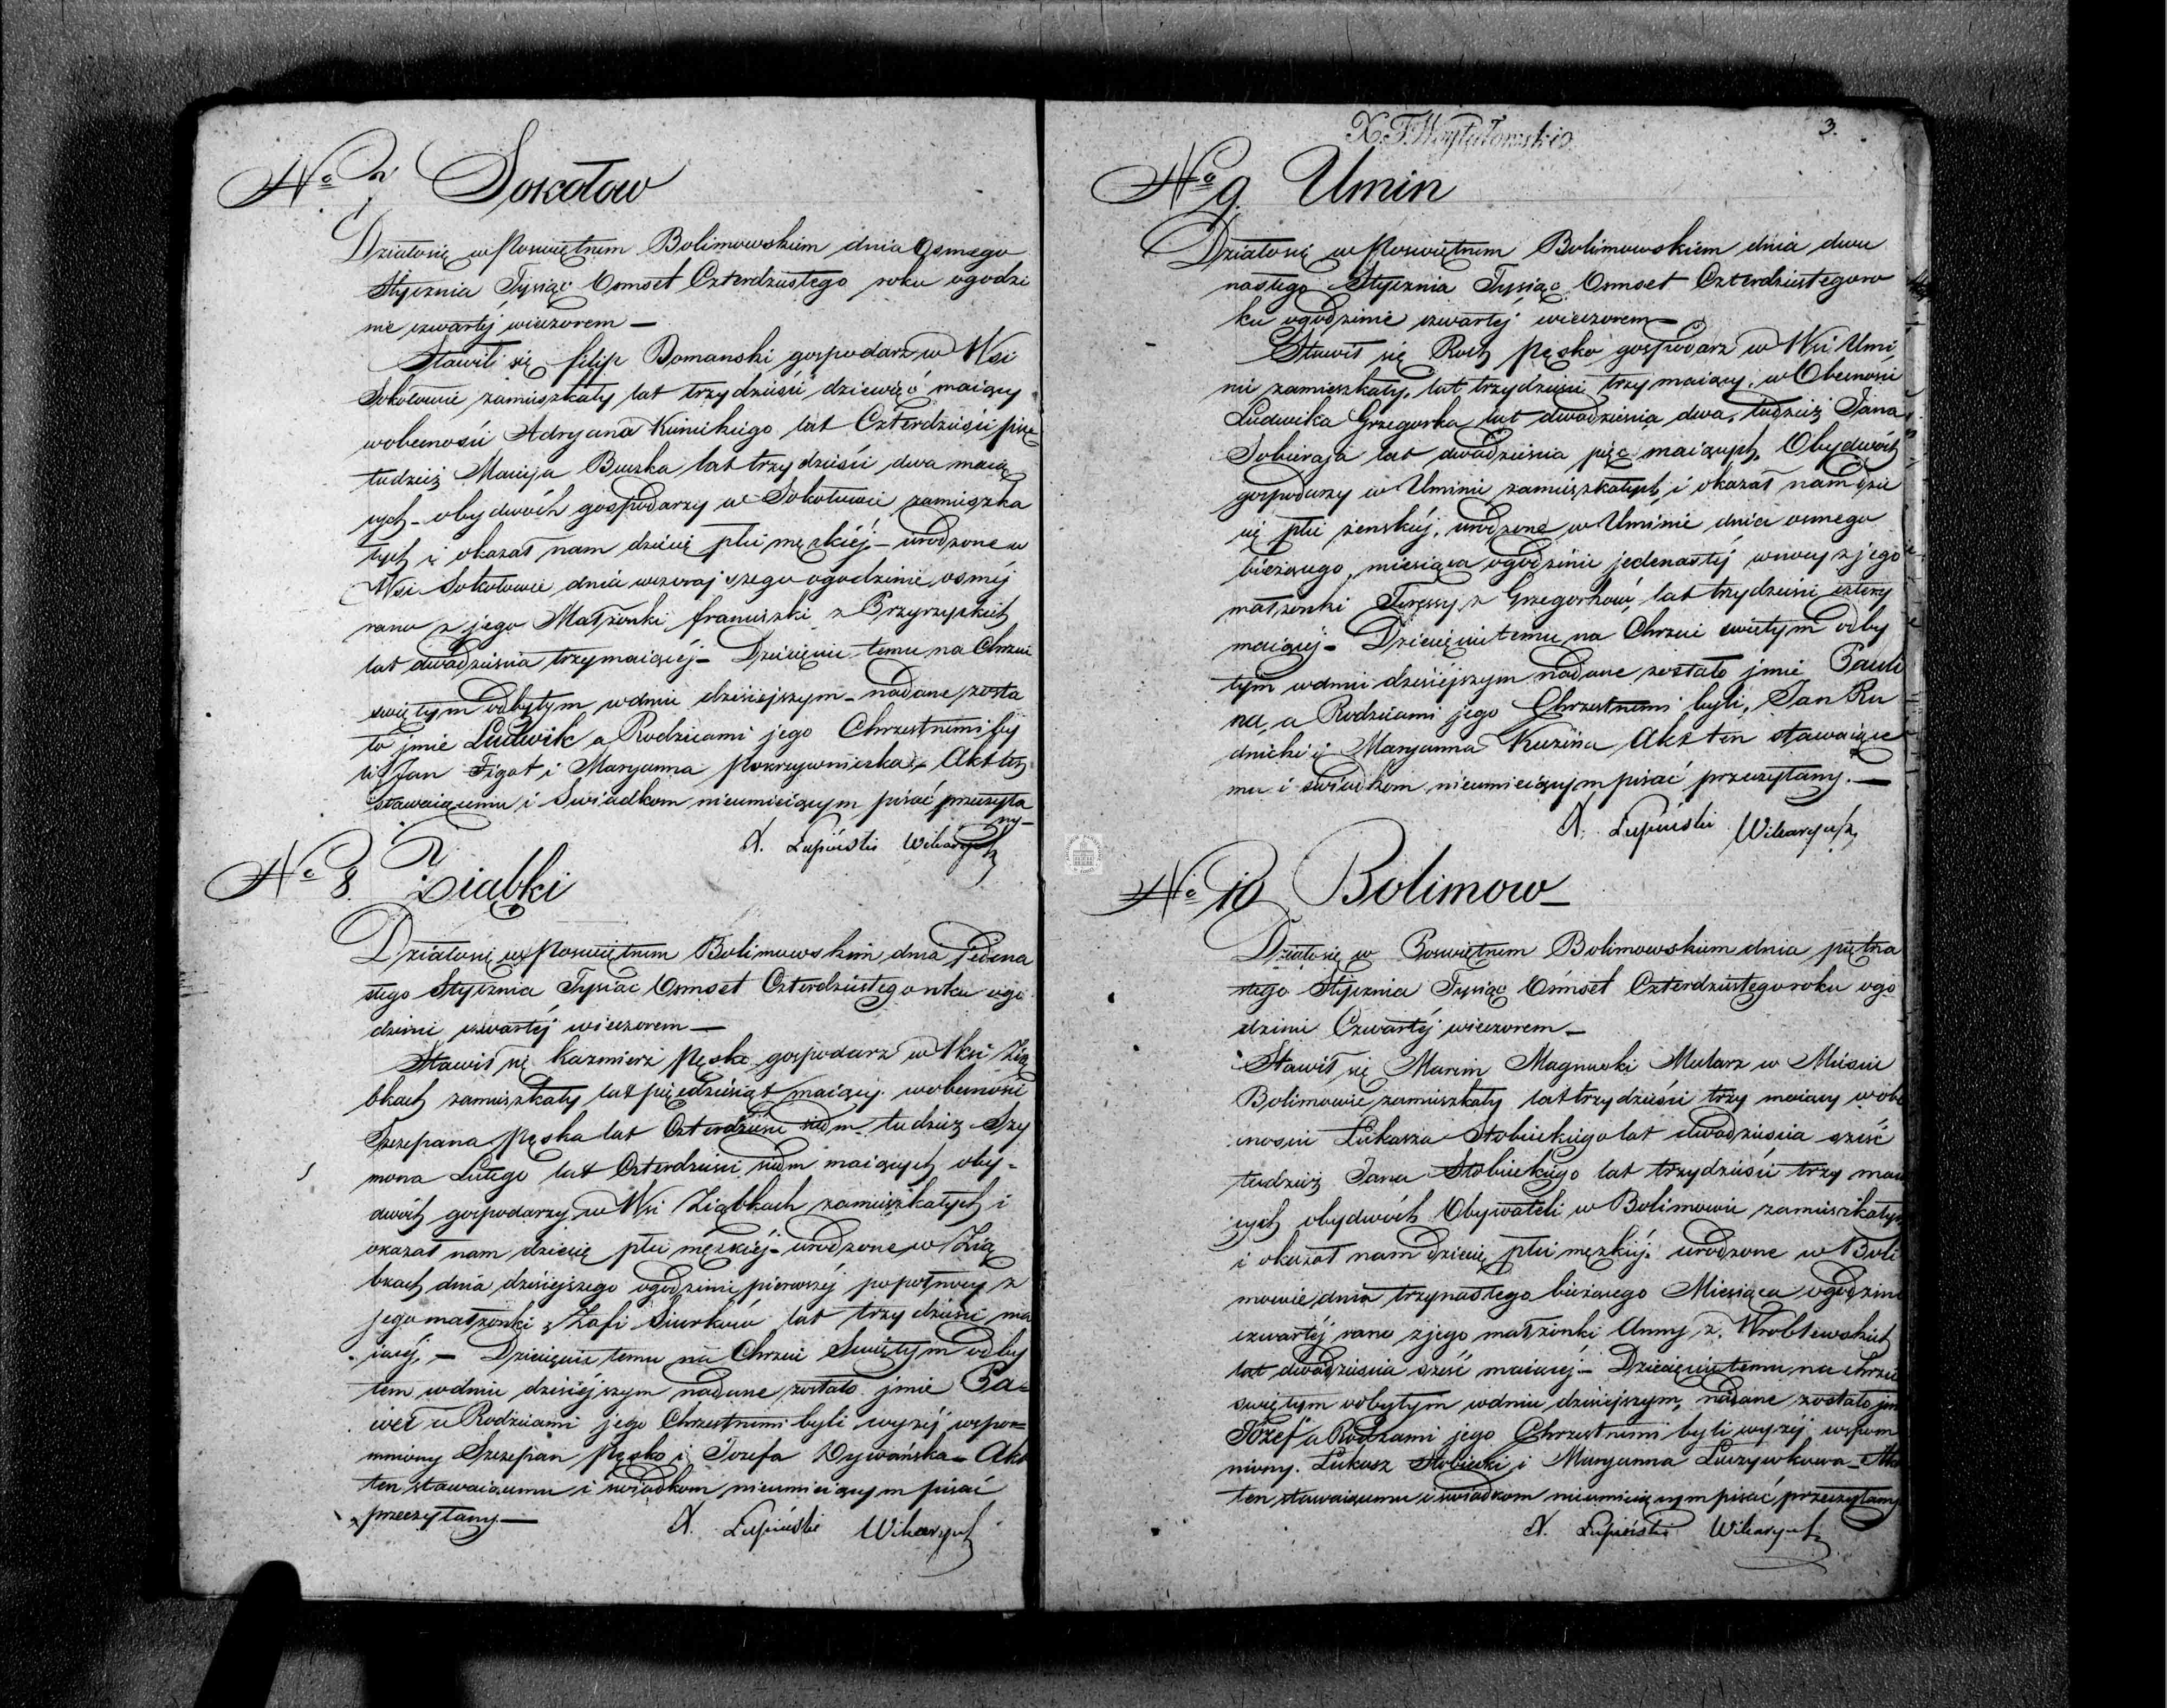 No 7 Sokołow
Działosię w Poswiętnem Bolimowskiem dnia Osmego
Stycznia Tysiąc Osmset Czterdziestego roku ogodzi
nie czwartéj wieczorem —
Stawił się filip Domanski gospodarz w Wsi
Sokołowie zamieszkały lat trzydzieści dziewięć maiący
wobecności Adryana Kunickiego lat Czterdzieści pię
tudzież Macieja Buszka lat trzydzieści dwa maią
cych - obydwóch gospodarzy w Sokołowie zamieszka
łych i okazał nam dziecię płci męzkiéj - urodzone w
Wsi Sokołowie dnia wczorajszego ogodzinie osméj
rano z jego Małżonki franciszki z Przyrzyskich
lat dwadzieścia trzy maiącéj - Dziecięciu temu na Chrzcie
swiętym odbytym wdniu dzisiejszym - nadane zosta
ło jmie Ludwik a Rodzicami jego Chrzestnemi by
li Jan Figat i Maryanna Pokrzywnicka - Akt ten
stawaiącemu i Swiadkom nieumieiącym pisać przeczyta
ny -
X. Łupiński Wikaryusz
No 8 Ziąbki
Działosię w Poswiętnem Bolimowskim dnia Jedena
stego Stycznia Tysiac Osmset Czterdziestego roku ogo
dzinie czwartéj wieczorem —
Stawił się Kazmierz Pęsko gospodarz w Wsi Zią
bkach zamieszkały lat pięcdziesiąt maiący wobecności
Szczepana Pęska lat Czterdzieści siedm tudzież Szy
mona Lutego lat Czterdzieści siedm maiących oby -
dwóch gospodarzy w Wsi Ziąbkach zamieszkałych i
okazał nam dziecię płci męzkiéj - urodzone w Zią
bkach dnia dzisiejszego ogodzinie pierwszéj popołnocy z
jego małżonki z Zofi Siurków lat trzydzieści ma
iącéj. — Dziecięciu temu na Chrzcie Swiętym odby
tem wdniu dzisiéjszym nadane zostało jmie Pa =
weł a Rodzicami jego Chrzestnemi byli wyzéj wspo =
mniony Szczepan Pęsko i Jozefa Dywańska - Akt
ten stawaiącemu i swiadkom nieumieiącym pisać
przeczytany —
X. Łupiński Wikaryusz
3.
No 9. Umin
Działosię w Poswiętnem Bolimowskiem dnia dwu
nastego Stycznia Tysiąc Osmset Czterdziestego ro
ku ogodzinie czwartéj wieczorem —
Stawił się Roch Pęsko gospodarz w Wsi Umi
nie zamieszkały, lat trzydzieści trzy maiący, w Obecności
Ludwika Grzegorka lat dwadzieścia dwa, tudzież Jana
Sobieraja lat dwadzieścia pięc maiących, Obydwóch
gospodarzy w Uminie zamieszkałych, i okazał nam dzie
cię płci zenskiéj, urodzone w Uminie dnia osmego
biezącego miesiąca ogodzinie jedenastéj wnocy z jego
małzonki Teressy z Grzegorków lat trzydzieści cztery
maiącéj - Dziecięciu temu na Chrzcie swiętym odby
tym wdniu dzisiéjszym nadane zostało jmie Pauli
na, a Rodzicami jego Chrzestnemi byli, Jan Ru
dnicki i Maryanna Akt ten stawaiące
mu i swiadkom nieumieiącym pisać przeczytany. —
X. Łupiński Wikaryusz
No 10 Bolimow —
Działosię w Poswiętnem Bolimowskiem dnia piętna
stego Stycznia Tysiąc Osmset Czterdziestego roku ogo
dzinie Czwartéj wieczorem —
Stawił się Marcin Magnuski Mularz w Miescie
Bolimowie zamieszkały lat trzydzieści trzy maiący wobe
cnosci Łukasza Stobieckiego lat dwadzieścia szesć
tudzież Jana Stobieckiego lat trzydzieści trzy maią
cych obydwóch Obywateli w Bolimowie zamieszkałych
i okazał nam dziecię płci męzkiéj urodzone w Boli
mowie dnia trzynastego bieżącego Miesiąca ogodzinie
czwartéj rano zjego małżonki Anny z Wroblewskich
lat dwadzieścia szesć maiącéj - Dziecięciu temu na chrzcie
swiętym odbytym wdniu dzisiejszym, nadane zostało jmi
Józef a Rodzicami jego Chrzestnemi byli wyzéj wspom
niony. Łukasz Stobiecki i Maryanna Luczywkowa - Akt
ten stawaiącemu i swiadkom nieumieiącym pisać przeczytany
X. Łupiński Wikaryusz